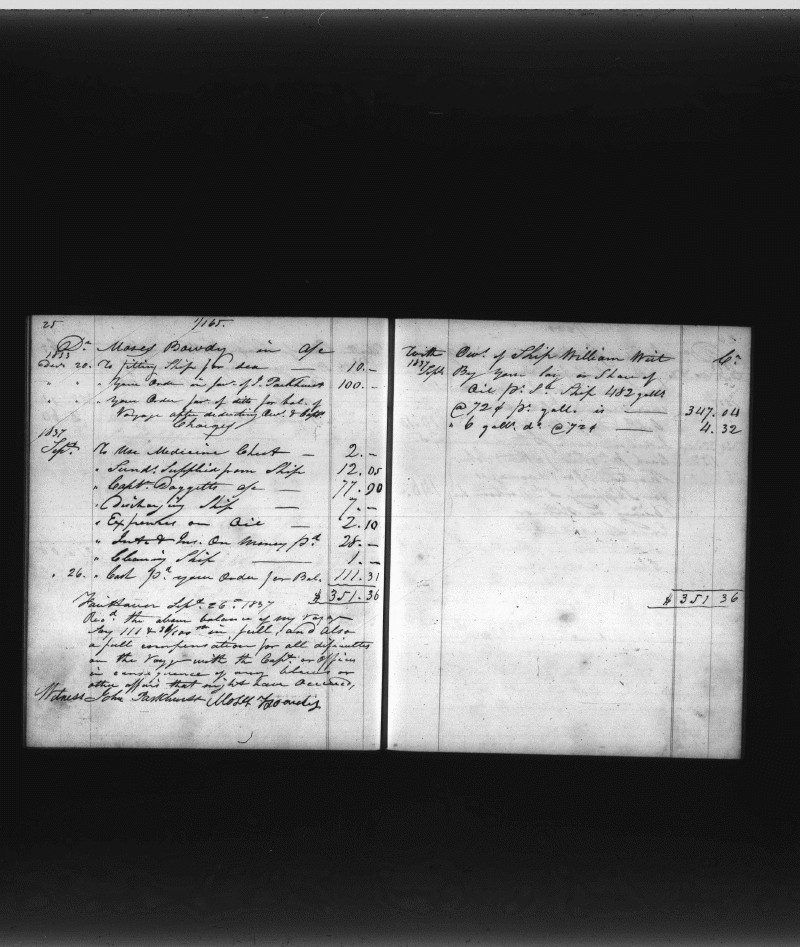 25 1/165.
Dr. Moses Bowdy in a/c
1833
Decr 20. To fitting Ship for sea — 10.—
" " " Your Order in favr. of J. Parkhurst 100.—
" " " your Order favr. of ditto for bal. of
Voyage after deducting Owr. & Capts
Charges
1837
Sept. To Use Medicine Chest — 2.—
" Sunds. Supplied from Ship 12.05
" Captn. Daggetts a/c — 77.90
" Discharging Ship — 7.—
" Expenses on Oil — 2.10
" Intt. & Ins. On Money pd. 28.—
" Cleaning Ship — 1.—
" 26. " Cash pr. your Order for Bal. 111.31
$ 351.36
Fairhaven Sept. 26th 1837
Recd. the above balance of my voyage
Say 111 & 31/100ths in full, and also
a full compensation for all difficulties
on the Voyge with the Capt. or Officers
in consequence of any blows or
other affairs that might have occurred,
Witness John Parkhurst Moses Bowdy
With Owr. of Ship William Wirt Cr.
1837
Sept. By Your Lay or Share of
Oil pr. Sd. Ship 482 galls
@ 72¢ pr. gall. is — 347.04
" 6 galls. do. @ 72¢ — 4.32
$ 351 36